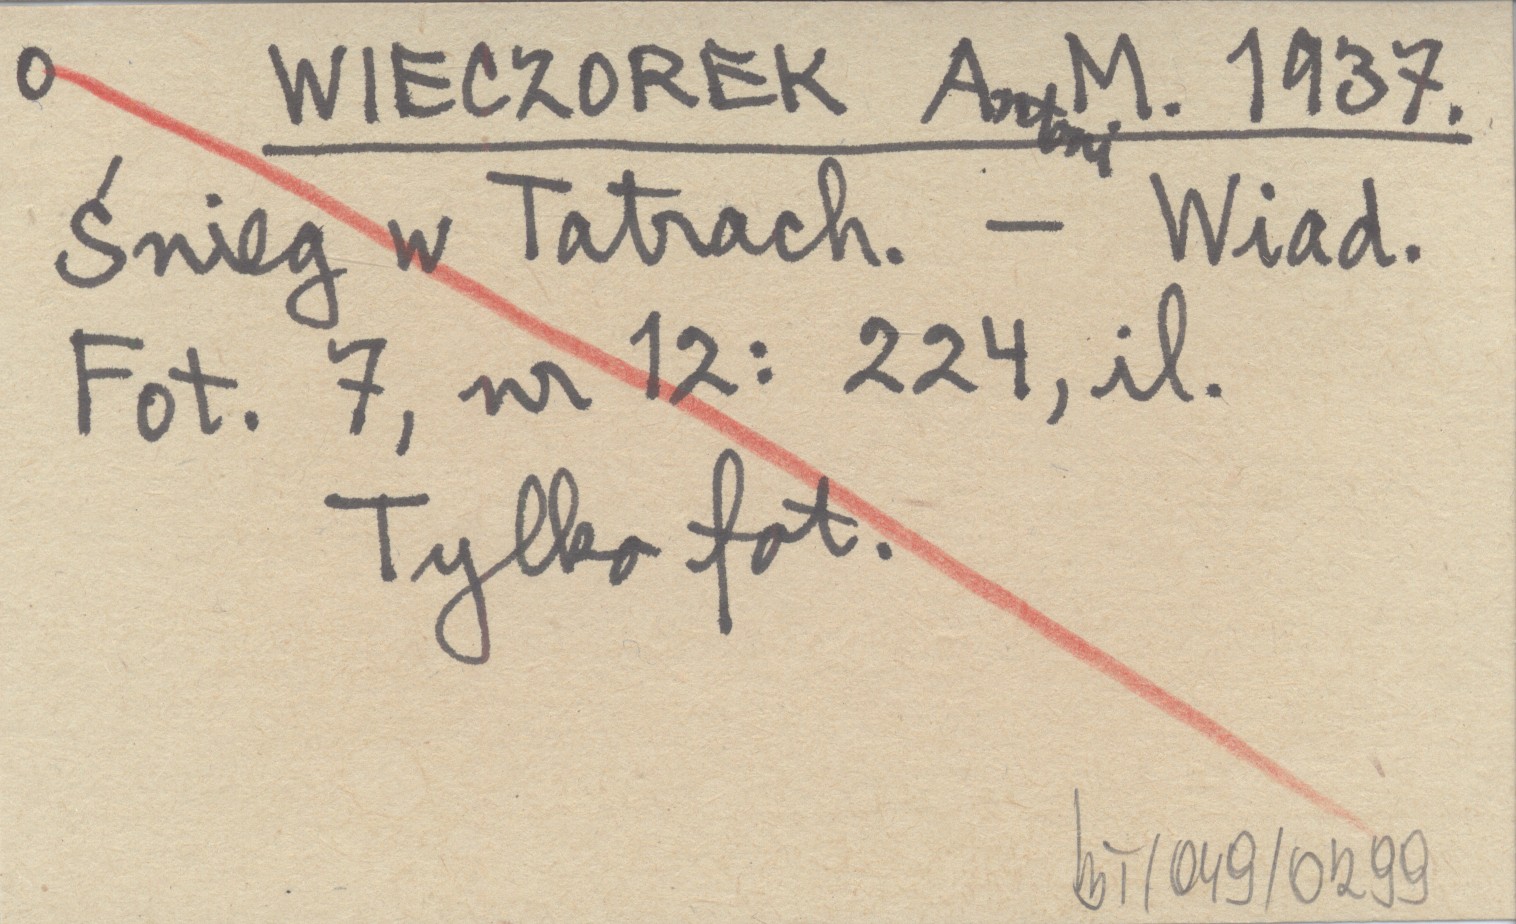 O WIECZOREK Antoni M. 1937.
Śnieg w Tatrach. – Wiad.
Fot. 7, nr 12: 224, il.
Tylko fot.